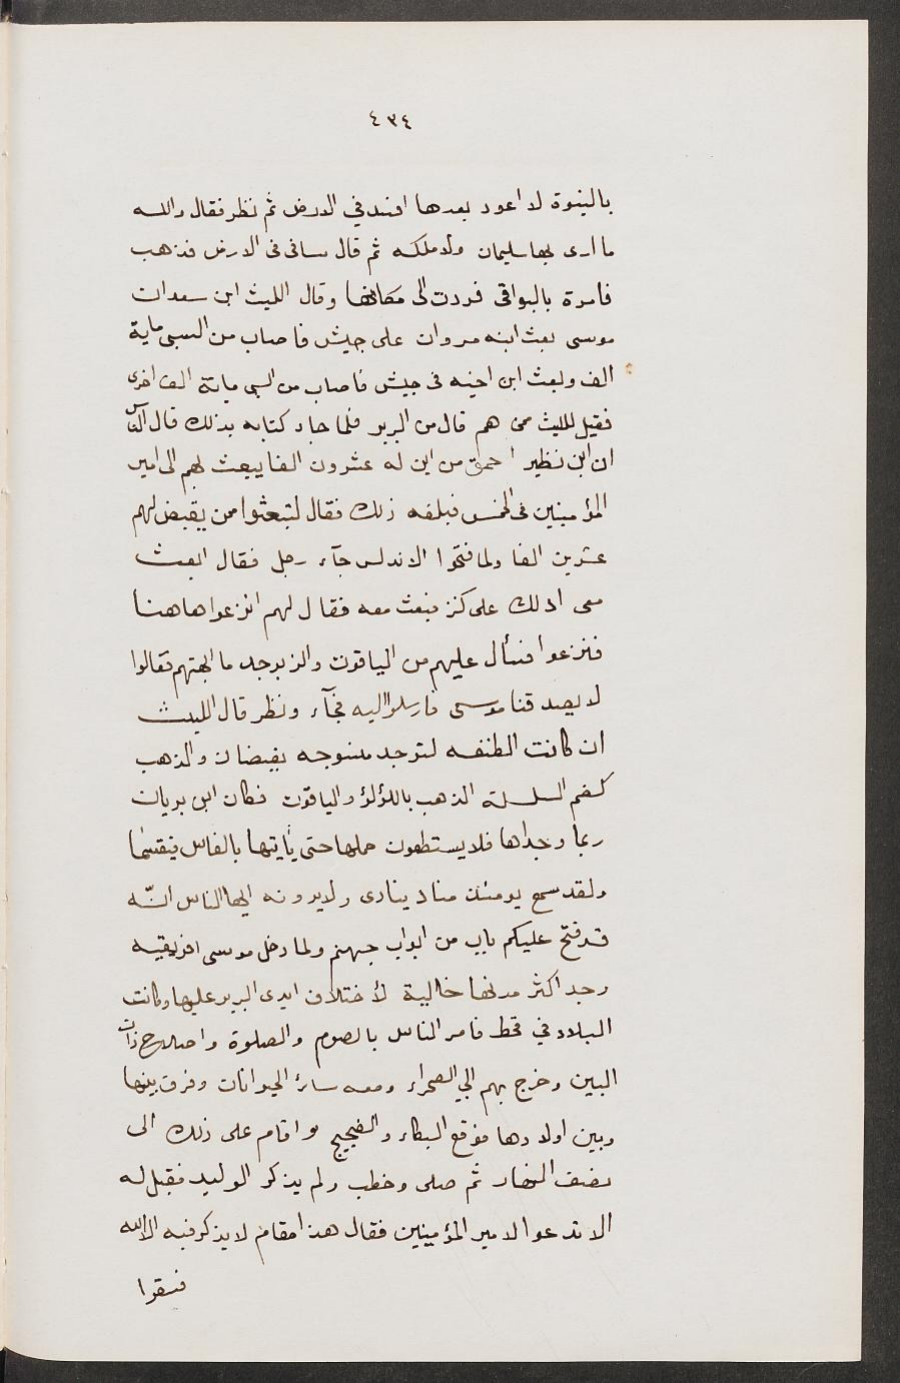 ٤٣٤
بالنبوة لا اعود بعدها افسد في الارض ثم نظر فقال والله
ما ارى بها سليمان ولا ملكه ثم قال سافى فى الارض فذهب
فامرة بالبواقى فردت الى مكانها وقال الليث ابن سعد ان
موسى بعث ابنه مروان على جيش فاصاب من السبى ماية
الف وبعث ابن اخيه فى جيش فاصاب من السبى ماية الف اخرى
فقيل لليث من هم قال من البربر فلما جاء كتابه بذلك قال الناس
ان ابن نظير احمق من اين له عشرون الفا يبعث لهم الى امير
المؤمنين فى الخمس فبلغه ذلك فقال لتبعثوا من يقبض لهم
عشرين الفا ولما فتحوا الاندلس جآء رجل فقال ابعث
معى ادلك على كنز فبعث معه فقال لهم انزعوا هاهنا
فنزعوا فسأل عليهم من الياقوت والزبرجد ما ابهتهم فقالوا
لا يصدقنا موسى فارسلوا اليه فجآء ونظر قال الليث
ان كانت الطنفسه لتوجد منسوجه بقضبان والذهب
السلسلة الذهب باللؤلؤ والياقوت فكان البربريان
ربما وجداها فلا يستطعون حملها حتى يأيتها بالفاس فيقسما
ولقد سمع يومئذ مناد ينادى ولا يرونه ايها الناس انه
قد فتح عليكم باب من ابواب جهنم ولما دخل موسى افريقيه
وجد اكثر مدنها خالية لأختلاف ايدى البربر عليها وكانت
البلاد في قحط فامر الناس بالصوم والصلوة واصلاح ذات
البين وخرج بهم الى الصحراء ومعه سائر الحيوانات وفرق بينها
وبين اولادها فوقع البكاء والضجيج واقام على ذلك الى
نصف النهار ثم صلى وخطب ولم يذكر الوليد فقيل له
الا تدعوا لامير المؤمنين فقال هذا مقام لا يذكر فيه الا الله
فسقوا